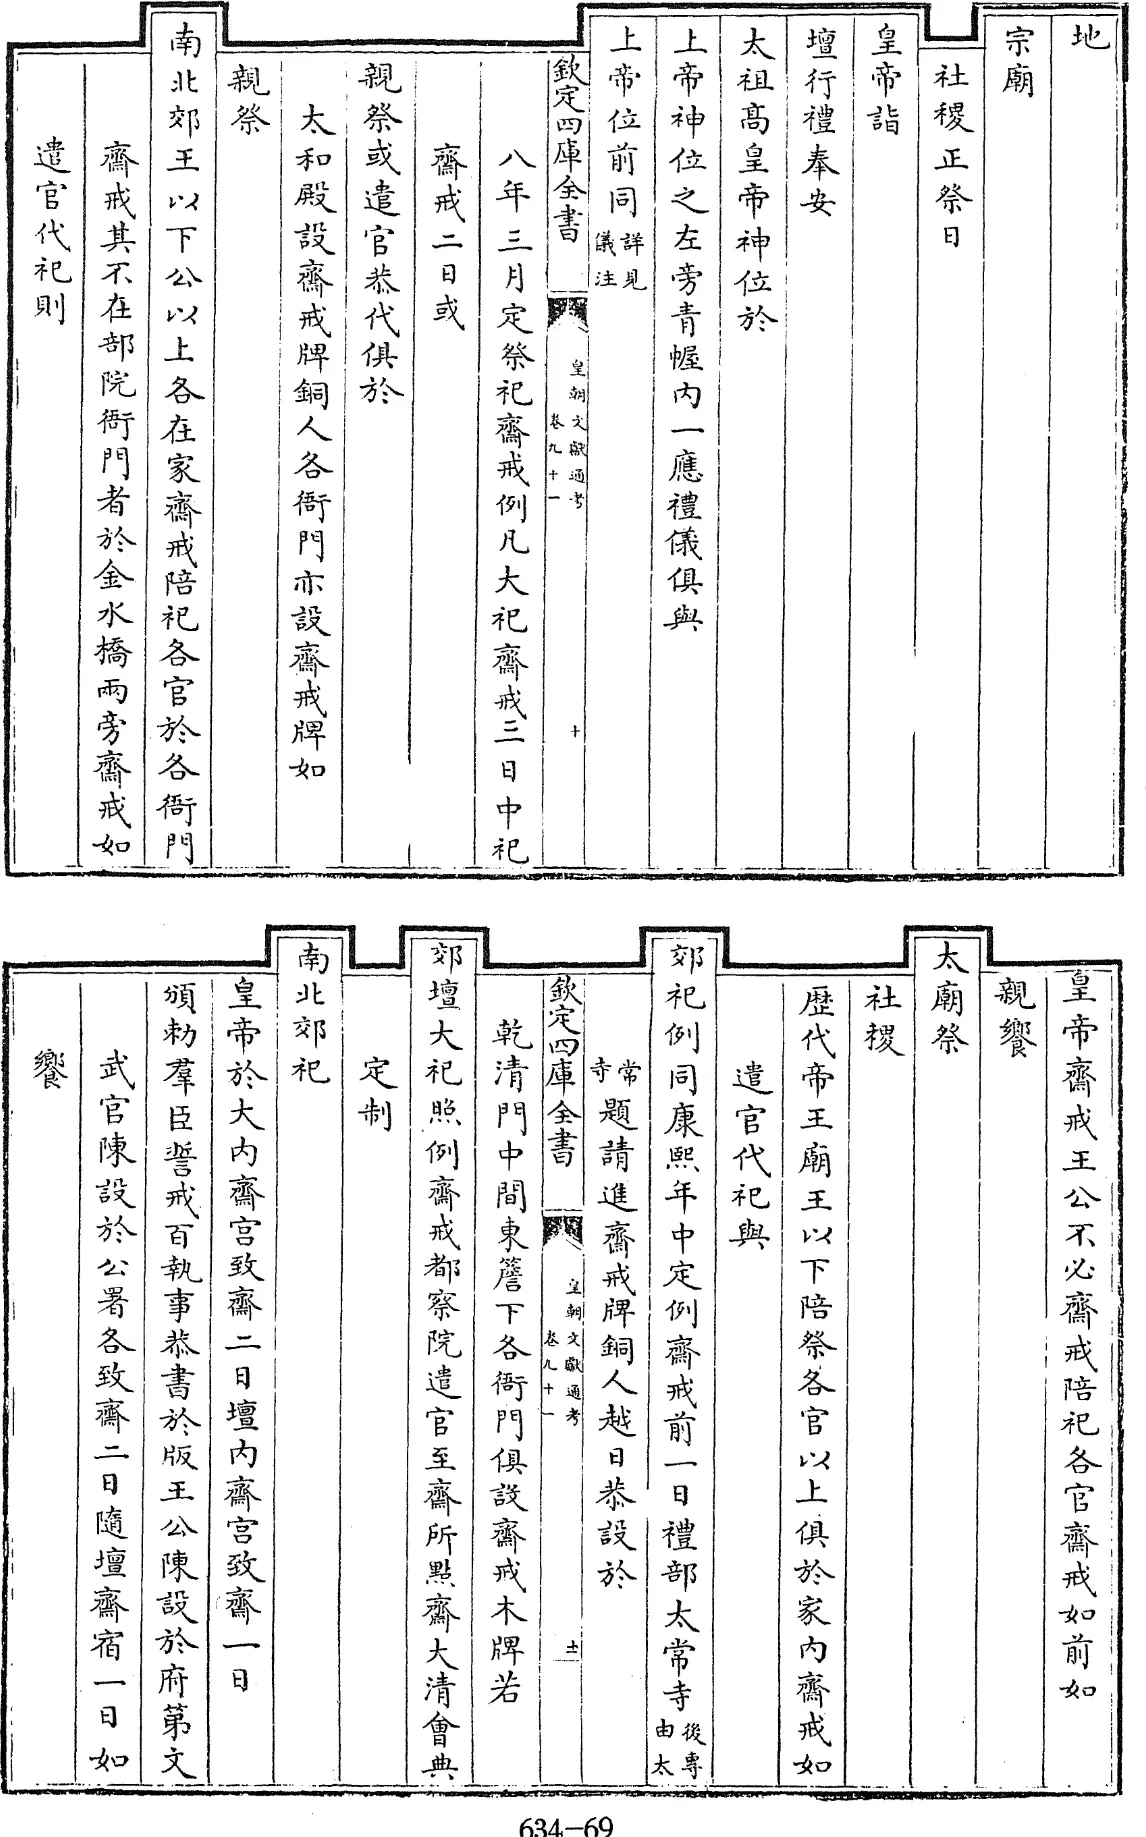 地
宗廟
社稷正祭日
皇帝詣
壇行禮奉安
太祖高皇帝神位於
上帝神位之左旁青幄內一應禮儀俱與
上帝位前同詳見儀注
欽定四庫全書 皇朝文獻通考 卷九十一 十
八年三月定祭祀齋戒例凡大祀齋戒三日中祀
齋戒二日或
親祭或遣官恭代俱於
太和殿設齋戒牌銅人各衙門亦設齋戒牌如
親祭
南北郊王以下公以上各在家齋戒陪祀各官於各衙門
齋戒其不在部院衙門者於金水橋兩旁齋戒如
遣官代祀則
皇帝齋戒王公不必齋戒陪祀各官齋戒如前如
親饗
太廟祭
社稷
歷代帝王廟王以下陪祭各官以上俱於家內齋戒如
遣官代祀與
郊祀例同康熙年中定例齋戒前一日禮部太常寺後專由太
常寺題請進齋戒牌銅人越日恭設於
欽定四庫全書 皇朝文獻通考 卷九十一 十一
乾清門中間東簷下各衙門俱設齋戒木牌若
郊壇大祀照例齋戒都察院遣官至齋所點齋大清會典
定制
南北郊祀
皇帝於大內齋宮致齋二日壇內齋宮致齋一日
頒勅羣臣誓戒百執事恭書於版王公陳設於府第文
武官陳設於公署各致齋二日隨壇齋宿一日如
饗
634-69